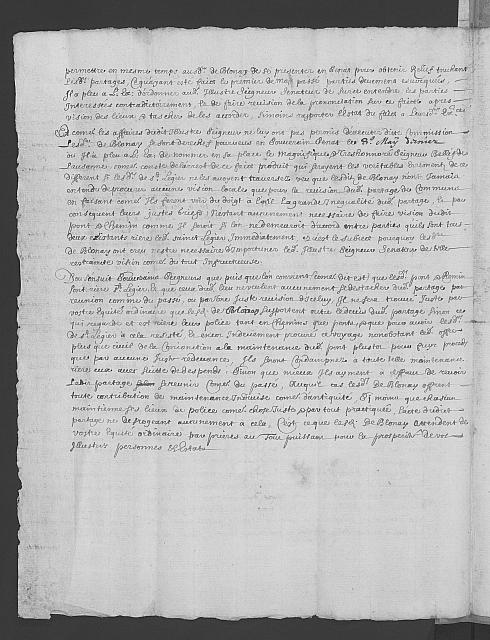 permettre en mesme temps ausd. de Blonay de se presenter en Senat pour obtenir Relief touchant
lesd. partages, Ce quayant esté fait le premier de May passé parties deuement
Il a pleu a L. Ex. d'ordonner aud. Illustre Seigneur Senateur de Sure entendre les parties
Interessées contradictoirement, & de faire revision de la prononciation sur ce faicte apres
vision des lieux & tascher de les accorder, sinon rapporter l'estat du faict a Leursd. Ex.
Et comme les affaires dudit Illustre Seigneur ne luy ont pas permis d'executer dite Commission
Lesd. de Blonay se sont derechef pourveus en Souverain Senat le May dernier
ou Il a pleu a L. Ex. de commettre en sa place le Magnifique & Treshonnoré Seigneur Baillif de
Lausanne, comme conste de larrest de ce faict produict qui servoyt
different si lesd. de St. Legier ne les avoyent traversés veu que lesd. de Blonay n'ont Jamais
entendu de procurer aucune vision locale que pour la revision dud. partage du Commun
en faisant comme Ils firent voir du doigt a l'oeil la grande Inegualité dud. partage, & par
consequent leurs justes griefs; N'estant aucunement necessaire de faire vision dudit
pont & chemin comme Il seroit si lon ne demeuroit d'accord entre parties quels sont tous
deux existents riere led. saint Legier Immediatement, & c'est le subiect pourquoy lesd.
de Blonay ont creu n'estre necessaire d'Importuner led. Illustre Seigneur Senateur de telle
restrainte vision comme du tout Infructueuse.
Nos Souverains Seigneurs que puis que lon convient comme dit est que lesd. pont & chemin
sont riere St. Legier, & que ceux dud. lieu ne veulent aucunement se destacher dud. partage par
reunion comme du passé, ou par une Juste revision d'Iceluy, Il ne sera trouvé Juste par
vostre Equité ordinaire que lesd. de Blonay supportent outre le deuis dud. partage, sinon ce
qui regarde et est riere leurs police tant en chemins que ponts, & que pour avoir lesd.
de St. Legier a cela resisté, & encor Indeuement procuré ce voyage nonobstant led. offre
plus que civil de la Contribution a la maintenance dud. pont plustost pour fuyr procés
que par aucune Juste redevance, Ils seront Condamnés a toute telle maintenance
riere eux avec suitte de despends: Sinon que mieux Ils ayment a deffaut de revoir
ledit partage se reunir Comme du passé, Auquel cas lesd. de Blonay offrent
toute contribution de maintenance Induise comme d'antiquité. Et moins que chascun
maintienne ses lieux de police comme chose Juste & par tout practiquée, l'acte dudict
partage ne desrogeant aucunement a cela; C'est ce que lesd. de Blonay attendent de
vostre Equité ordinaire par prieres au Tout puissant pour la prosperité de vos
Illustres personnes & Estats